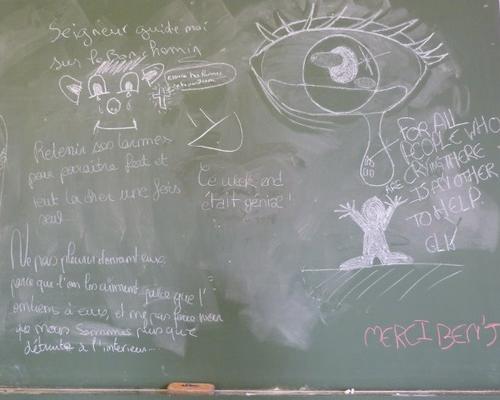 Seigneur guide moi
sur le Bon chemin
Retenir son larmes
pour paraitre fort et
tout lacher une fois
seul
Le week-end
était génial !
Ne pas pleurer devant eux,
parce que l'on les aiment, parce que l'
à eux, et ne pas faire voir
que nous sommes plus que
détruite à l'interieur...
FOR ALL
PEOPLE WHO
ARE CRYING THERE
IS ANOTHER
TO HELP
MERCI BEN'J